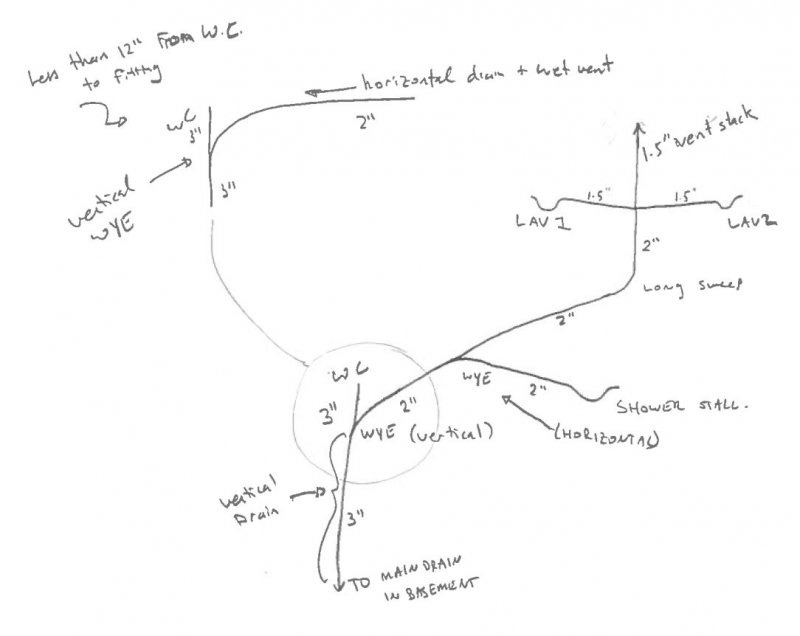 Less than 12" From W.C.
to fitting
horizontal drain + wet vent
2"
WC
3"
3"
vertical
WYE
1.5" vent stack
1.5"
1.5"
LAV 1
LAV2
2"
Long sweep
2"
WC
3"
2"
WYE
2"
SHOWER STALL.
(HORIZONTAL)
WYE (vertical)
vertical
Drain
3"
TO MAIN DRAIN
IN BASEMENT